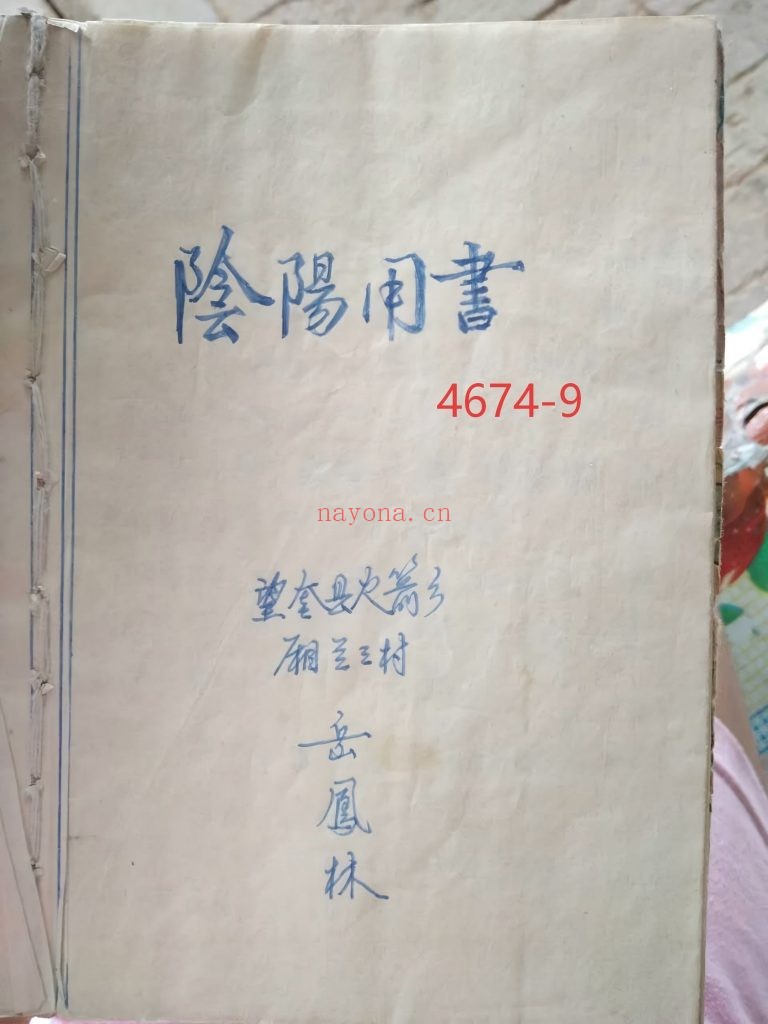 陰陽用書
4674-9
nayona.cn
望奎县火箭乡
厢兰三村
岳
鳳
林